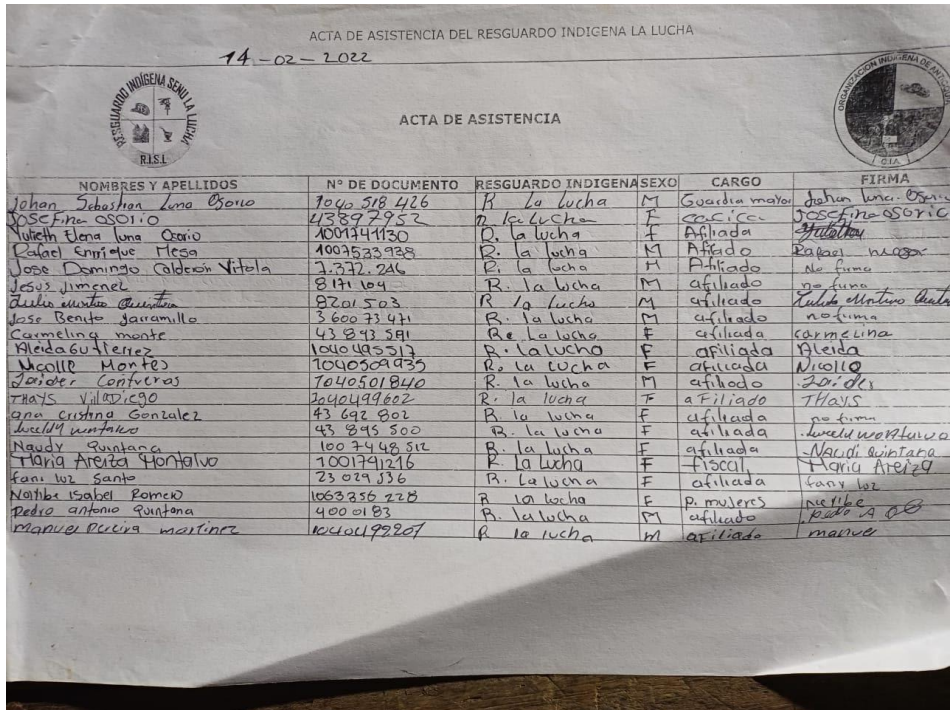 ACTA DE ASISTENCIA DEL RESGUARDO INDIGENA LA LUCHA
14-02-2022
RESGUARDO INDÍGENA SENU LA LUCHA
R.I.S.L
ORGANIZACION INDIGENA DE ANTIOQUIA
C.I.A
ACTA DE ASISTENCIA
NOMBRES Y APELLIDOS N° DE DOCUMENTO RESGUARDO INDIGENA SEXO CARGO FIRMA
Johan Sebastian Luna Osorio 1040 518 426 R La Lucha M Guardia mayor Johan luna Osorio
Josefina osorio 43897952 R la lucha F cacica Josefina osorio
Yulieth Elena luna Osorio 1001791130 R. la lucha f Afiliada
Rafael Enrrique Mesa 1007533938 R. la lucha M Afiliado Rafael
Jose Domingo Calderon Vitola 7.372.246 R. la lucha M Afiliado No firma
Jesus Jimenez 8171104 R. la lucha M afiliado no firma
8201503 R la lucha M afiliado
Jose Benito Jarramillo 3600 73 471 R. la lucha M afiliado no firma
Carmelina monte 43 843 591 Re La lucha F afiliada carmelina
Aleida Gutierrez 1040495517 R. la lucha F afiliada Aleida
Nicolle Montes 1040509935 R. la Lucha F afiliada Nicolle
Jaider Contreras 1040501840 R. la lucha M afiliado Jaider
THays VillaDiego 1040499602 R. la lucha F aFiliado THays
ana cristina Gonzalez 43 692 802 R. la lucha F afiliada no firma
43 895 500 R. la lucha F afiliada
Naudy Quintana 100 7448 512 R. la lucha F afiliada Naudi Quintana
Maria Areiza Montalvo 1001791216 R. La Lucha F fiscal Maria Areiza
fani luz Santo 23 029 536 R. La lucha F afiliada fany luz
Natibe Isabel Romero 1063356 228 R la lucha F p. mujeres
Pedro antonio Quintana 4000183 R. la lucha M afiliado pedro A
manuel Pereira martinez 1040492207 R la lucha m afiliado manuel